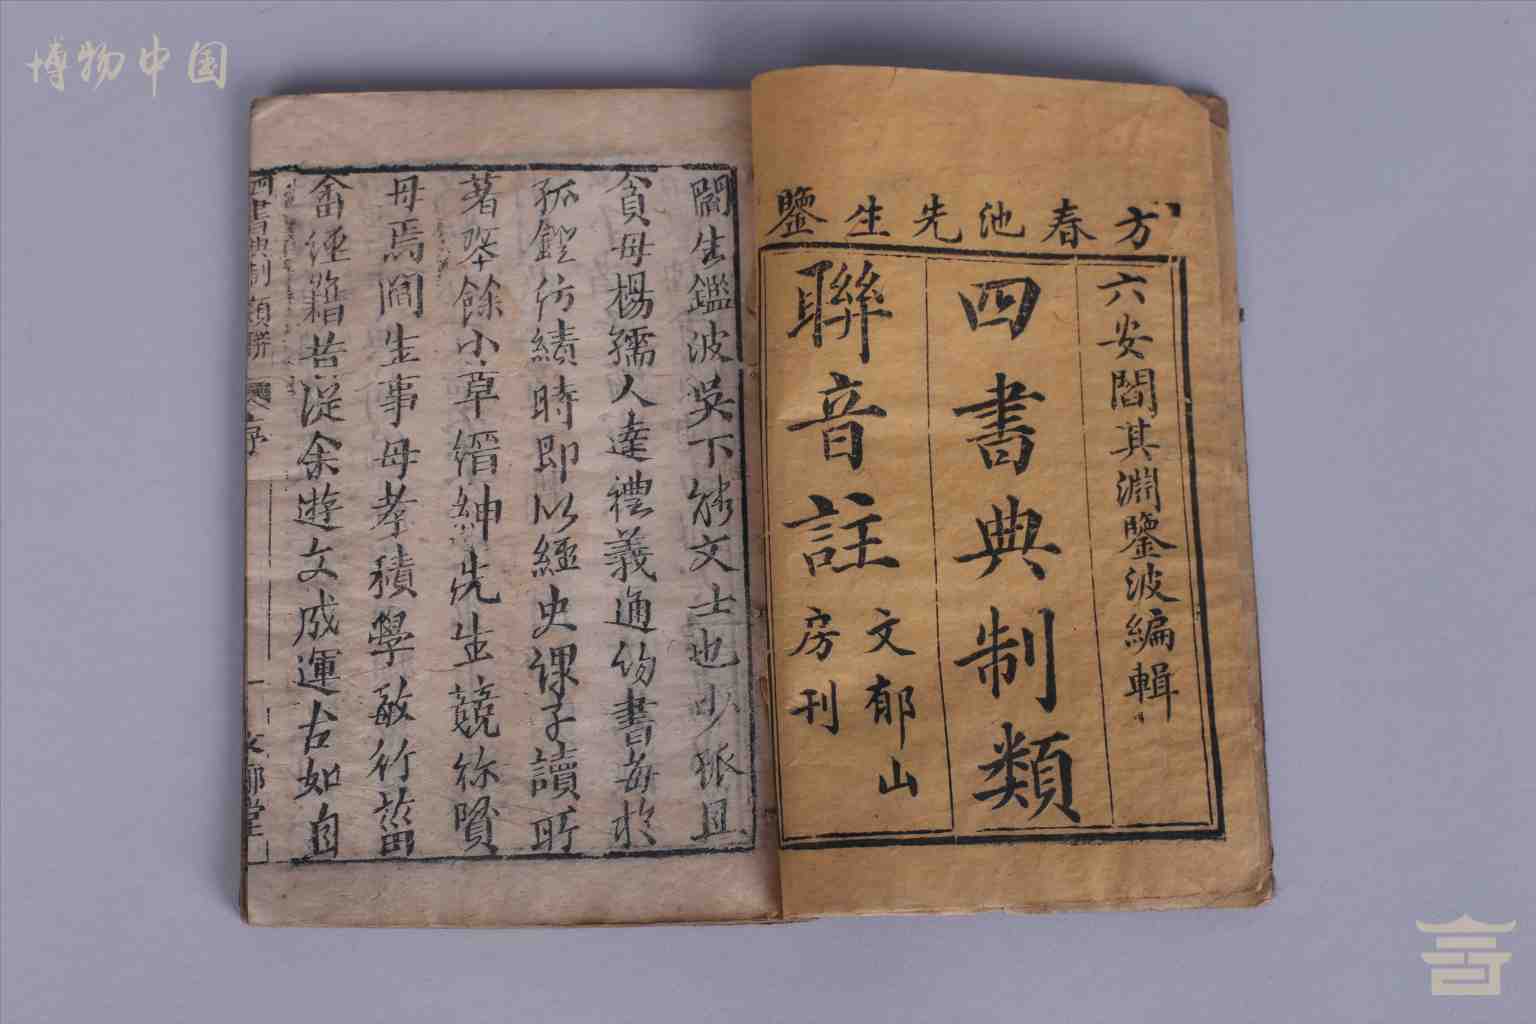 博物中国
方春池先生鑒
六安閻其淵鑒波編輯
四書典制類
聯音註
文郁山
房刊
閻生鑑波吳下能文士也少孤且
貧母楊孺人達禮義通詩書每於
孤燈紡績時即以經史課子讀所
著琴餘小草縉紳先生競称賢
母焉閻生事母孝積學敏行菑
畬經籍昔從余遊文成運古如自
四書典制類聯 序 一 文郁堂